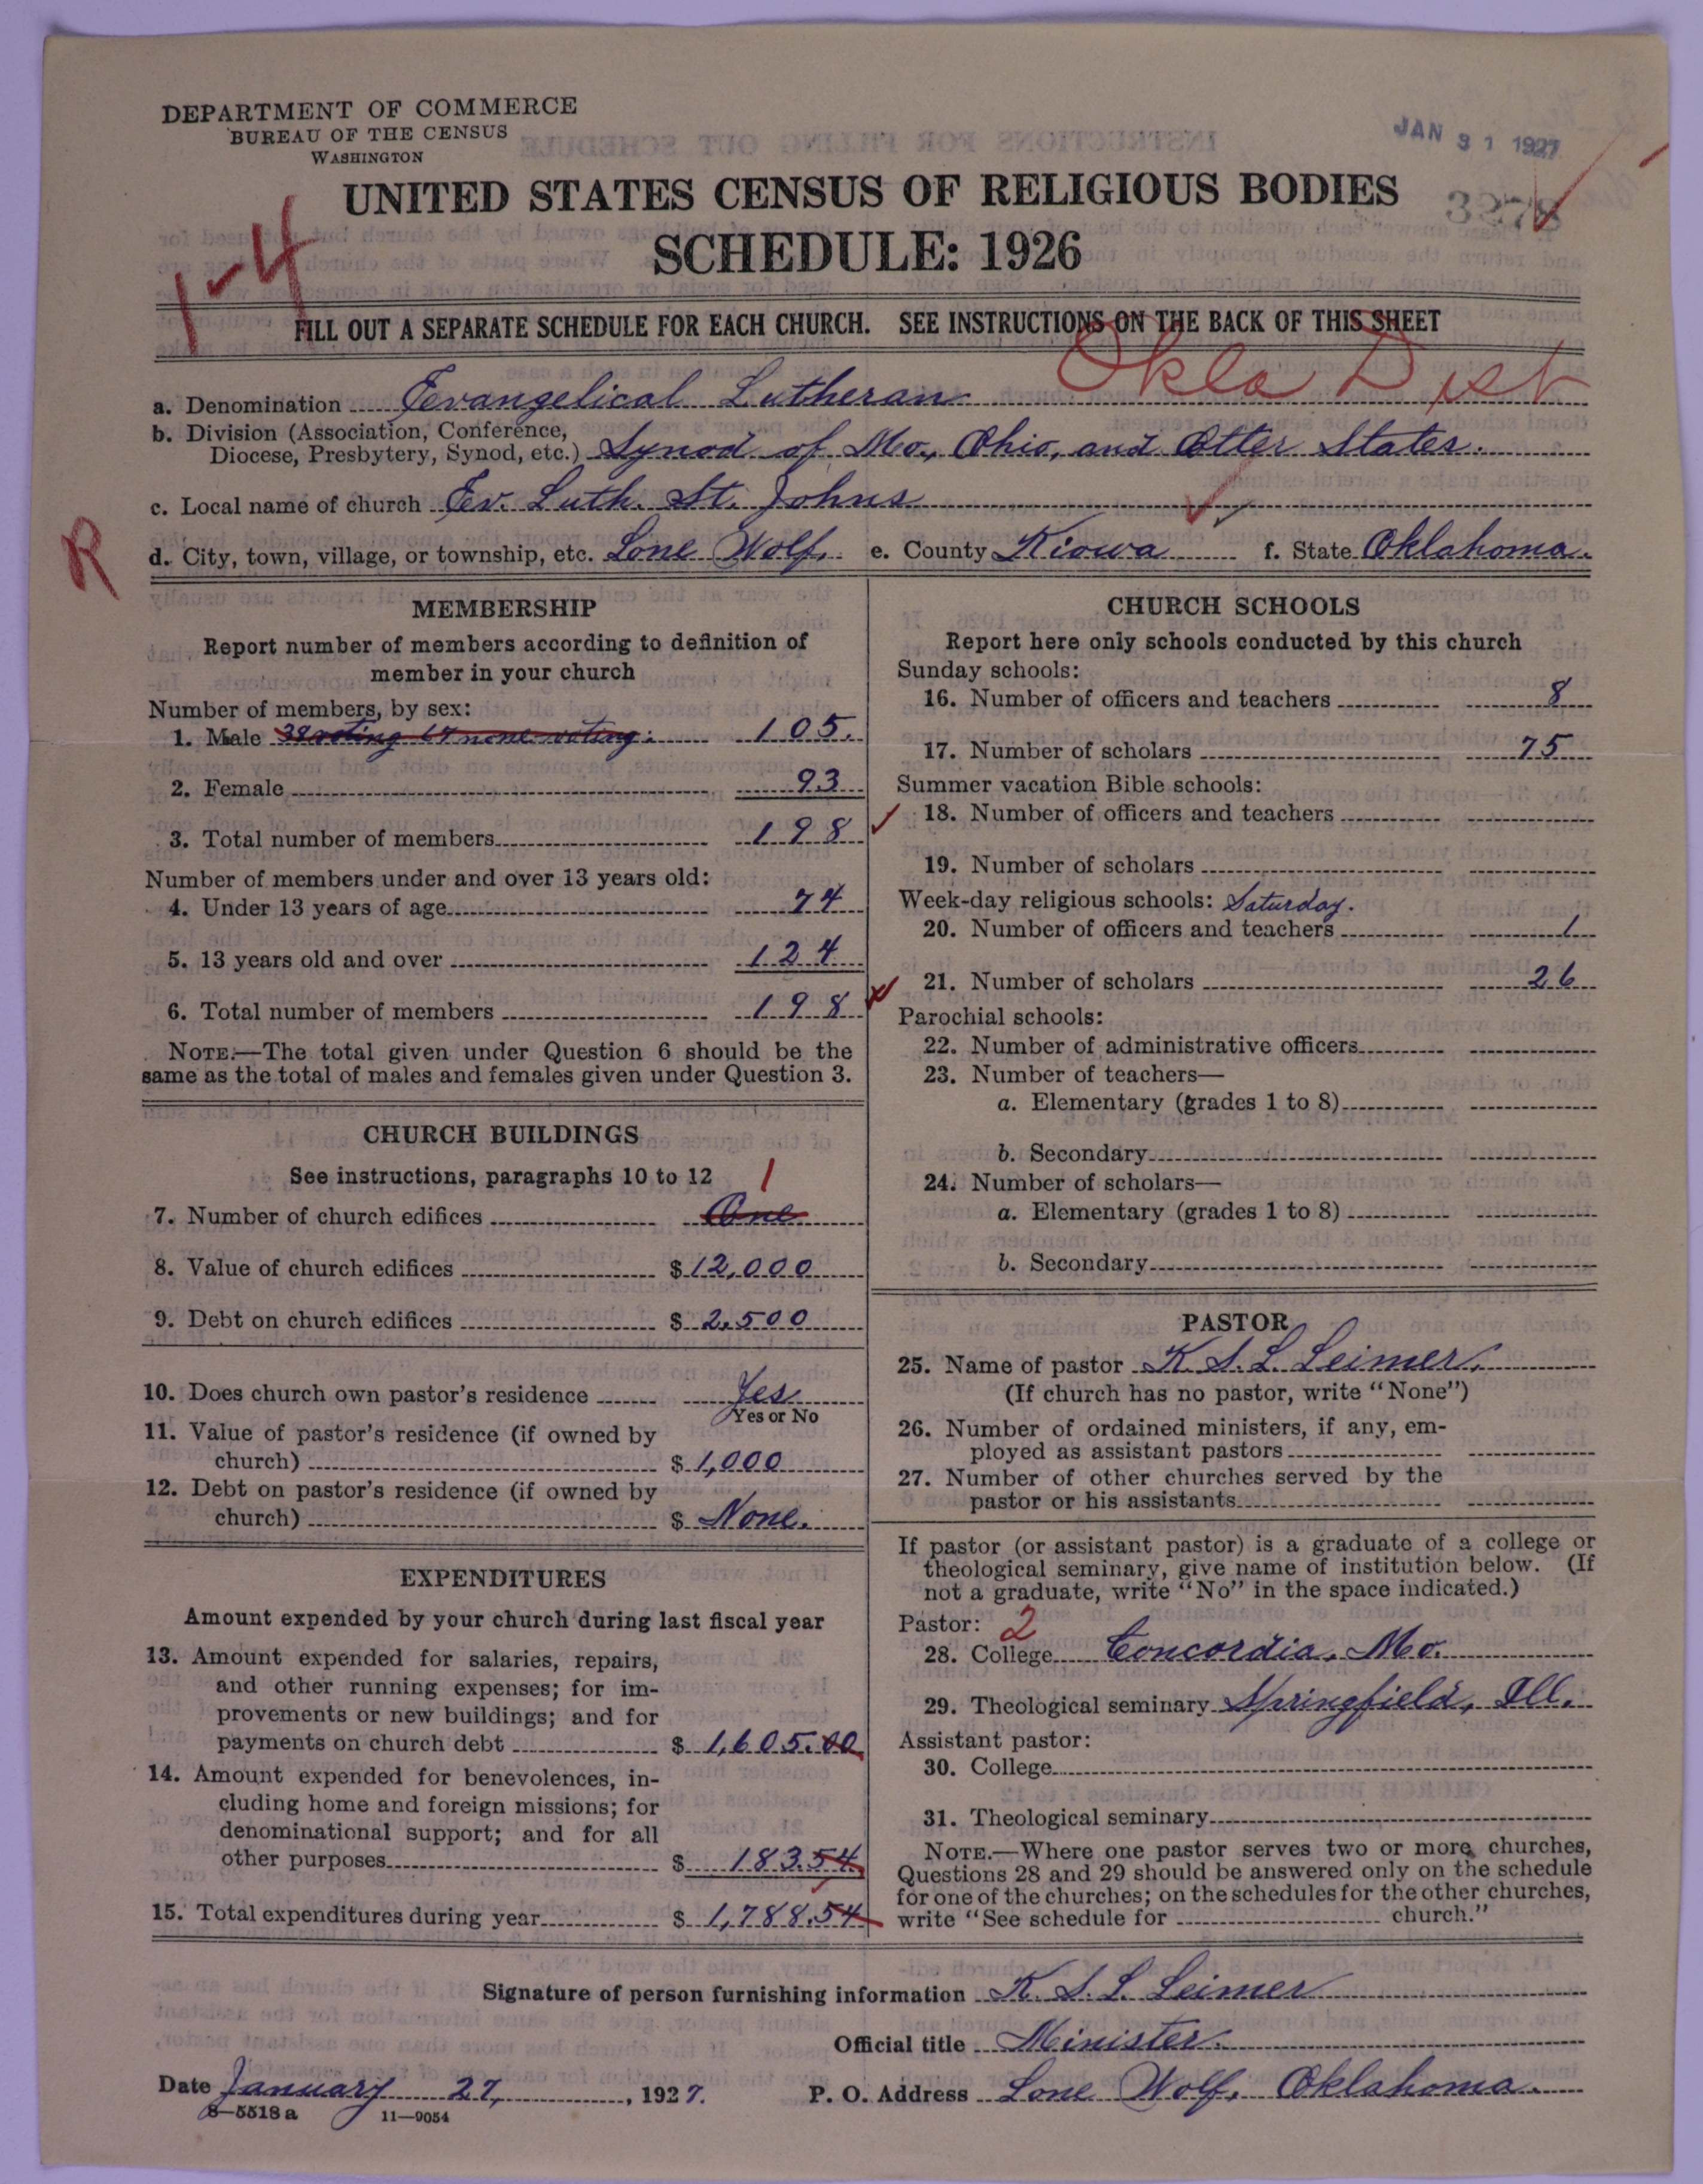 DEPARTMENT OF COMMERCE
BUREAU OF THE CENSUS
WASHINGTON
JAN 31 1927
UNITED STATES CENSUS OF RELIGIOUS BODIES
3278
SCHEDULE: 1926
1-4
FILL OUT A SEPARATE SCHEDULE FOR EACH CHURCH. SEE INSTRUCTIONS ON THE BACK OF THIS SHEET
Okla Dist
a. Denomination Evangelical Lutheran
b. Division (Association, Conference,
Diocese, Presbytery, Synod, etc.) Synod of Mo., Ohio, and Otter States.
c. Local name of church Ev. Luth. St. Johns
R
d. City, town, village, or township, etc. Lone Wolf. e. County Kiowa f. State Oklahoma.
MEMBERSHIP
Report number of members according to definition of
member in your church
Number of members, by sex:
1. Male 38 voting 67 none voting: 105.
2. Female 93
3. Total number of members 198
Number of members under and over 13 years old:
4. Under 13 years of age 74
5. 13 years old and over 124
6. Total number of members 198
NOTE.—The total given under Question 6 should be the
same as the total of males and females given under Question 3.
CHURCH BUILDINGS
See instructions, paragraphs 10 to 12 1
7. Number of church edifices One
8. Value of church edifices $ 12,000
9. Debt on church edifices $ 2,500
10. Does church own pastor's residence Yes
Yes or No
11. Value of pastor's residence (if owned by
church) $ 1,000
12. Debt on pastor's residence (if owned by
church) $ None.
EXPENDITURES
Amount expended by your church during last fiscal year
13. Amount expended for salaries, repairs,
and other running expenses; for im-
provements or new buildings; and for
payments on church debt $ 1,605.00
14. Amount expended for benevolences, in-
cluding home and foreign missions; for
denominational support; and for all
other purposes $ 183.54
15. Total expenditures during year $ 1,788.54
CHURCH SCHOOLS
Report here only schools conducted by this church
Sunday schools:
16. Number of officers and teachers 8
17. Number of scholars 75
Summer vacation Bible schools:
18. Number of officers and teachers
19. Number of scholars
Week-day religious schools: Saturday.
20. Number of officers and teachers 1
21. Number of scholars 26
Parochial schools:
22. Number of administrative officers
23. Number of teachers—
a. Elementary (grades 1 to 8)
b. Secondary
24. Number of scholars—
a. Elementary (grades 1 to 8)
b. Secondary
PASTOR
25. Name of pastor K. S. L. Leimer.
(If church has no pastor, write "None")
26. Number of ordained ministers, if any, em-
ployed as assistant pastors
27. Number of other churches served by the
pastor or his assistants
If pastor (or assistant pastor) is a graduate of a college or
theological seminary, give name of institution below. (If
not a graduate, write "No" in the space indicated.)
Pastor: 2
28. College Concordia, Mo.
29. Theological seminary Springfield, Ill.
Assistant pastor:
30. College
31. Theological seminary
NOTE.—Where one pastor serves two or more churches,
Questions 28 and 29 should be answered only on the schedule
for one of the churches; on the schedules for the other churches,
write "See schedule for church."
Signature of person furnishing information K. S. L. Leimer
Official title Minister.
Date January 27, 1927. P. O. Address Lone Wolf, Oklahoma.
8—5518 a 11—9054